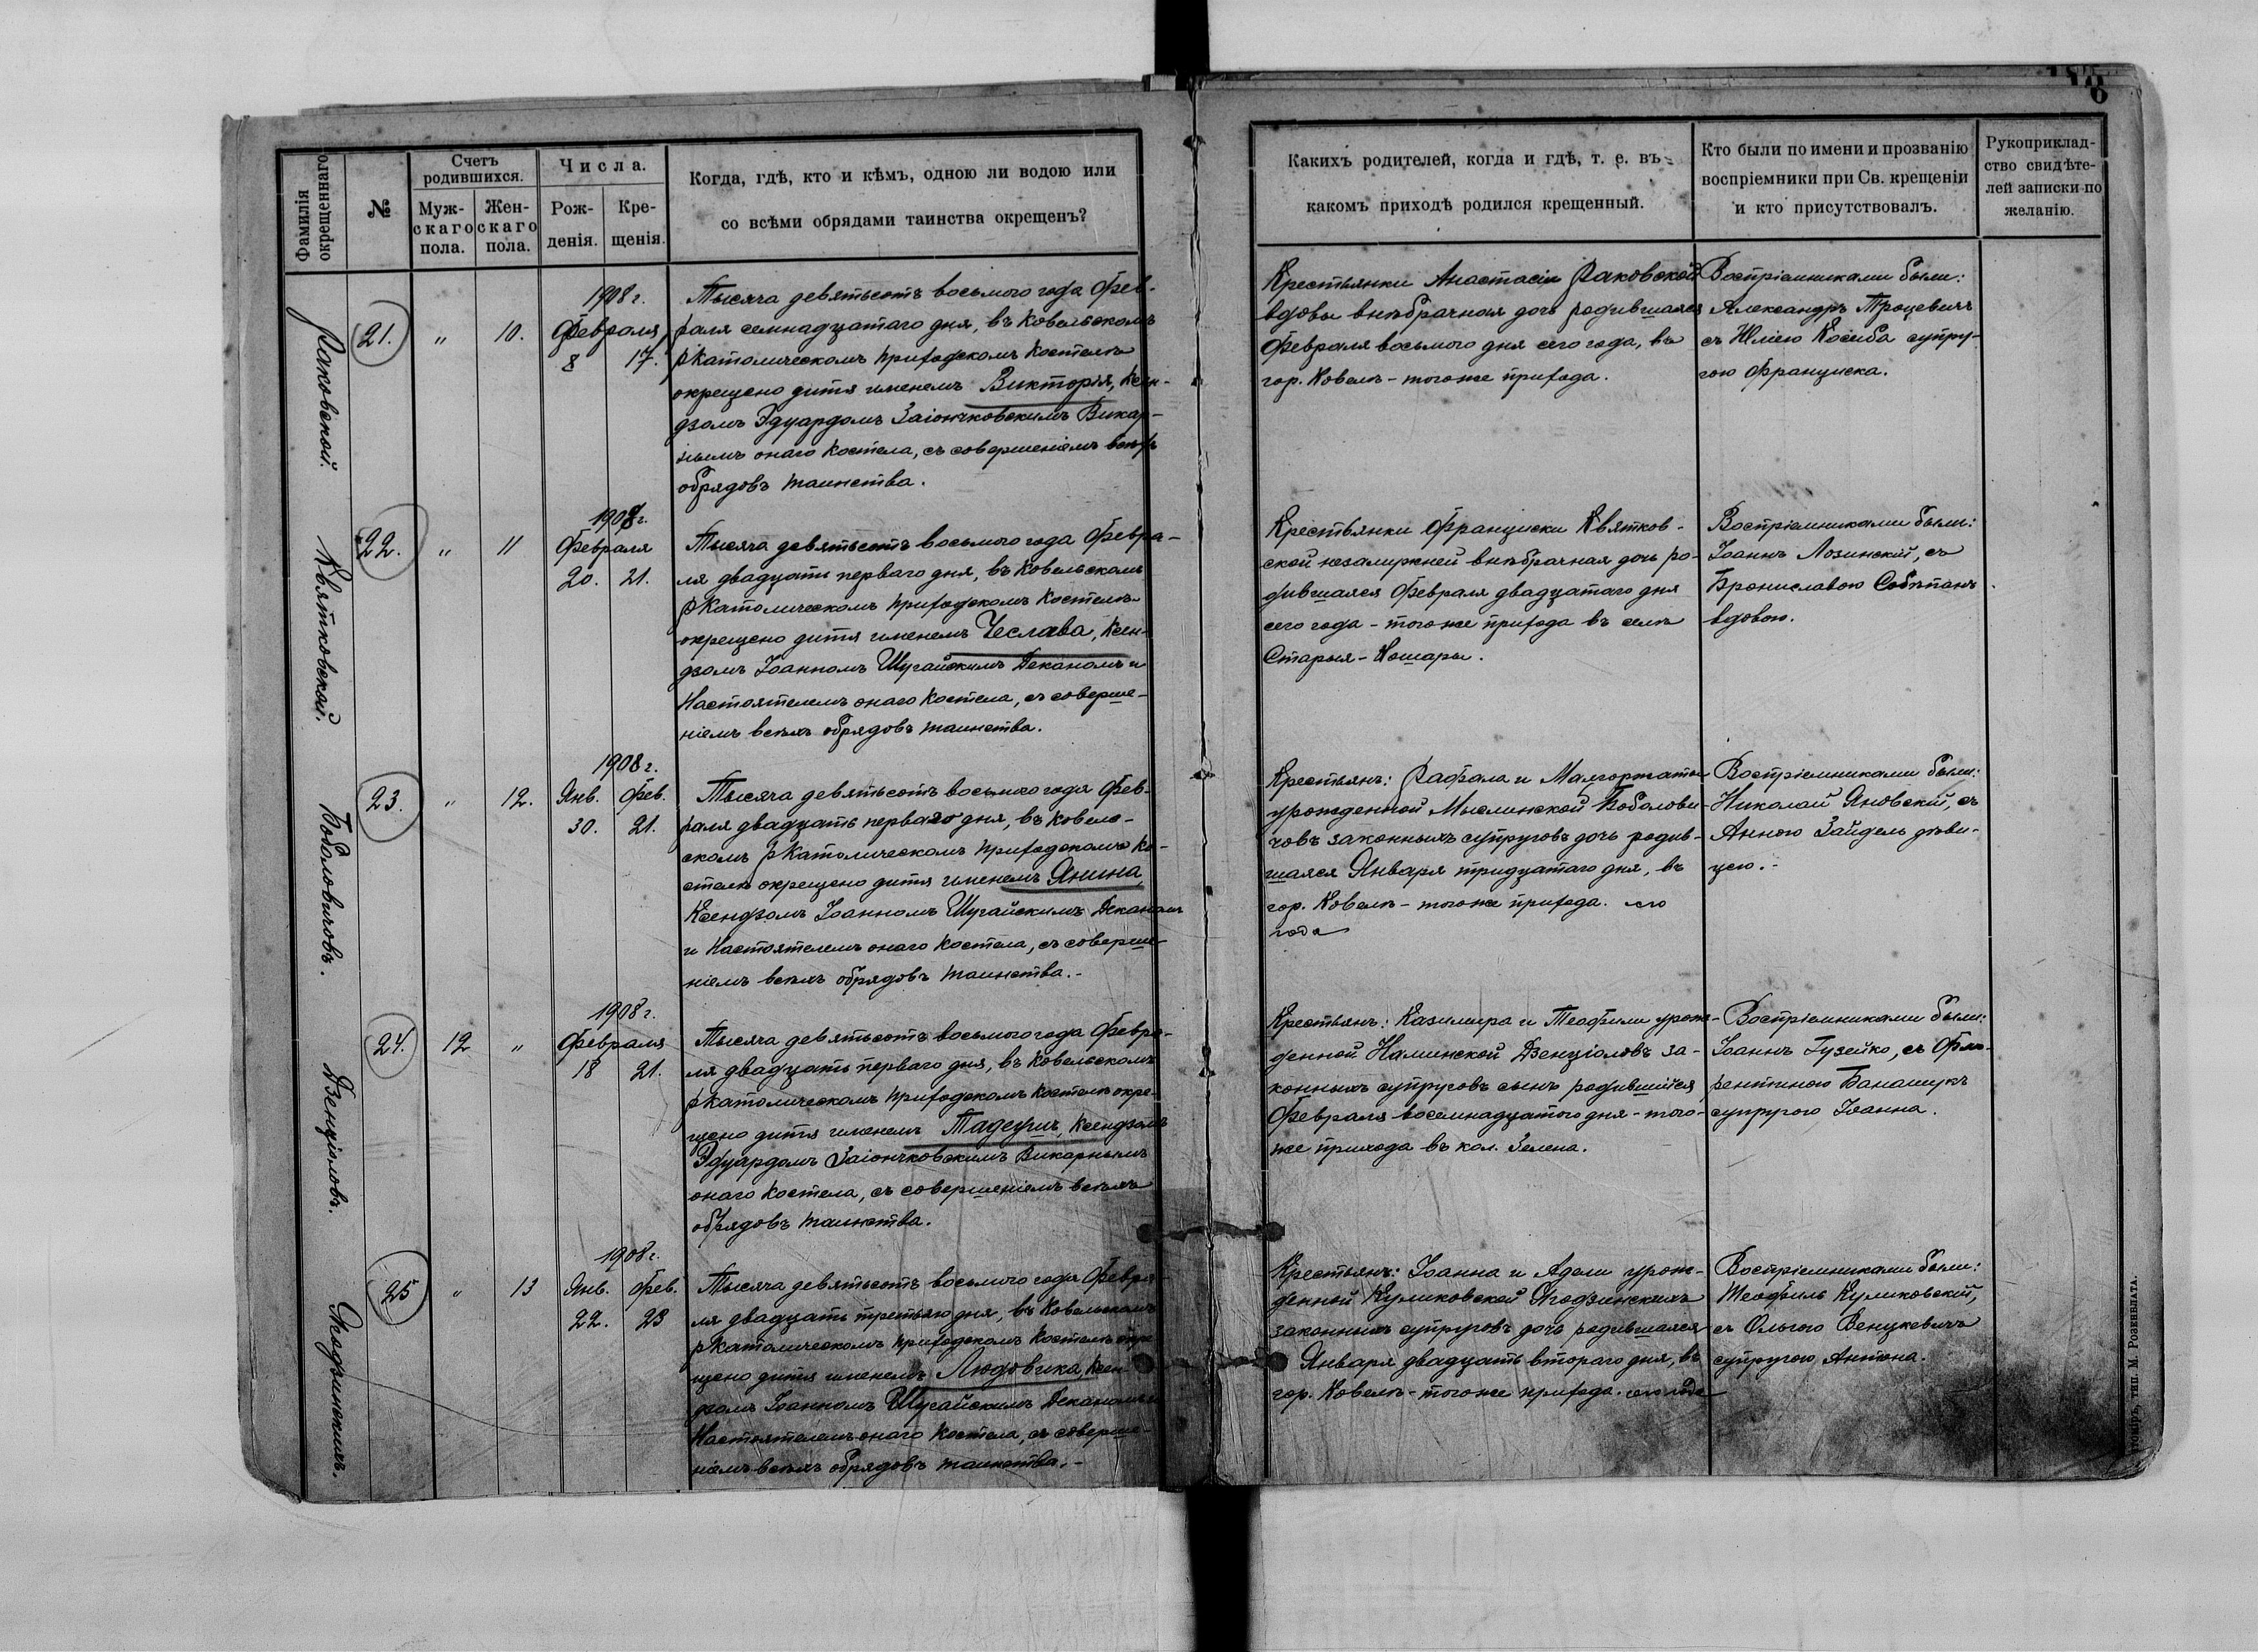 Фамилія
окрещеннаго
№
Счетъ
родившихся.
Муж-
скаго
пола.
Жен-
скаго
пола.
Числа.
Рож-
денія.
Кре-
щенія.
Когда, гдѣ, кто и кѣмъ, одною ли водою или
со всѣми обрядами таинства окрещенъ?
Раковской.
21.
"
10.
1908 г.
Февраля
8
17.
Тысяча девятьсотъ восьмого года Фев-
раля семнадцатаго дня, въ Ковельскомъ
РКатолическомъ приходскомъ Костелѣ
окрещено дитя именемъ Викторія, Ксен-
дзомъ Эдуардомъ Заіончковскимъ Викар-
нымъ онаго Костела, съ совершеніемъ всѣхъ
обрядовъ таинства.
Квятковской.
22.
"
11
1908 г.
Февраля
20.
21.
Тысяча девятьсотъ восьмого года Февра-
ля двадцать перваго дня, въ Ковельскомъ
РКатолическомъ приходскомъ Костелѣ
окрещено дитя именемъ Чеслава, Ксен-
дзомъ Іоанномъ Шугайскимъ Деканомъ и
Настоятелемъ онаго Костела, съ соверше-
ніемъ всѣхъ обрядовъ таинства.
Боболовичовъ.
23.
"
12.
1908 г.
Янв.
Фев.
30.
21.
Тысяча девятьсотъ восьмого года Фев-
раля двадцать перваго дня, въ Ковель-
скомъ РКатолическомъ приходскомъ Ко-
стелѣ окрещено дитя именемъ Янина,
Ксендзомъ Іоанномъ Шугайскимъ Деканомъ
и Настоятелемъ онаго Костела, съ соверше-
ніемъ всѣхъ обрядовъ таинства.-
Дзенціоловъ.
24.
12
"
1908 г.
Февраля
18
21.
Тысяча девятьсотъ восьмого года Февра-
ля двадцать перваго дня, въ Ковельскомъ
РКатолическомъ приходскомъ Костелѣ окре-
щено дитя именемъ Тадеушъ, Ксендзомъ
Эдуардомъ Заіончковскимъ Викарнымъ
онаго Костела, съ совершеніемъ всѣхъ
обрядовъ таинства.
Ягодзинскихъ.
25
"
13
1908 г.
Янв.
Фев.
22.
23
Тысяча девятьсотъ восьмого года Февра-
ля двадцать третьяго дня, въ Ковельскомъ
РКатолическомъ приходскомъ Костелѣ окре-
щено дитя именемъ Людовика, Ксен-
дзомъ Іоанномъ Шугайскимъ Деканомъ и
Настоятелемъ онаго Костела, съ соверше-
ніемъ всѣхъ обрядовъ таинства.-
6
Какихъ родителей, когда и гдѣ, т. е. въ
какомъ приходѣ родился крещенный.
Кто были по имени и прозванію
воспріемники при Св. крещеніи
и кто присутствовалъ.
Рукоприклад-
ство свидѣте-
лей записки по
желанію.
Крестьянки Анастасіи Раковской
вдовы внѣбрачная дочь родившаяся
Февраля восьмого дня сего года, въ
гор. Ковелѣ - тогоже прихода.
Воспріемниками были:
Александръ Троцевичъ
съ Юліею Косиба супру-
гою Франциска.
Крестьянки Франциски Квятков-
ской незамужней внѣбрачная дочь ро-
дившаяся Февраля двадцатаго дня
сего года - тогоже прихода въ селѣ
Старыя - Кошары.
Воспріемниками были:
Іоаннъ Лозинскій, съ
Брониславою Собѣпанъ
вдовою.
Крестьянъ: Рафала и Малгоржаты
урожденной Мыслинской Боболови-
човъ законныхъ супруговъ дочь родив-
шаяся Января тридцатаго дня, въ
гор. Ковелѣ - тогоже прихода. сего
года
Воспріемниками были:
Николай Яновскій, съ
Анною Зайдель дѣви-
цею.-
Крестьянъ: Казимира и Теофили урож-
денной Каминской Дзенціоловъ за-
конныхъ супруговъ сынъ родившійся
Февраля восемнадцатого дня - того-
же прихода въ кол. Зелена.
Воспріемниками были:
Іоаннъ Гузейко, съ Фло-
рентиною Банашукъ
супругою Іоанна.
Крестьянъ: Іоанна и Адели урож-
денной Куликовской Ягодзинскихъ
законныхъ супруговъ дочь родившаяся
Января двадцать втораго дня, въ
гор. Ковелѣ - тогоже прихода. сего года
Воспріемниками были:
Теофиль Куликовскій,
съ Ольгою Венцкевичъ
супругою Антона.
тип. М. Розенблата.